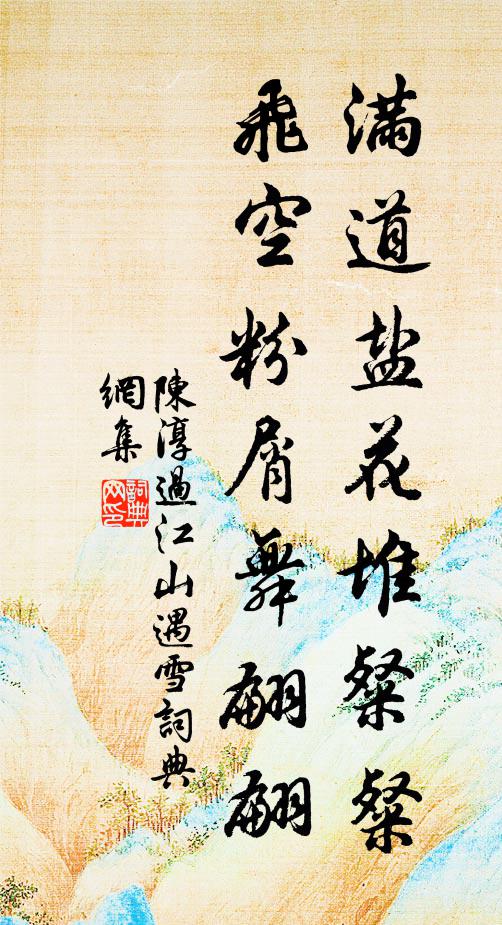 满道盐花堆粲粲
飛空粉屑舞翩翩
陳淳過江山遇雪詞典
網集
詞典
网印